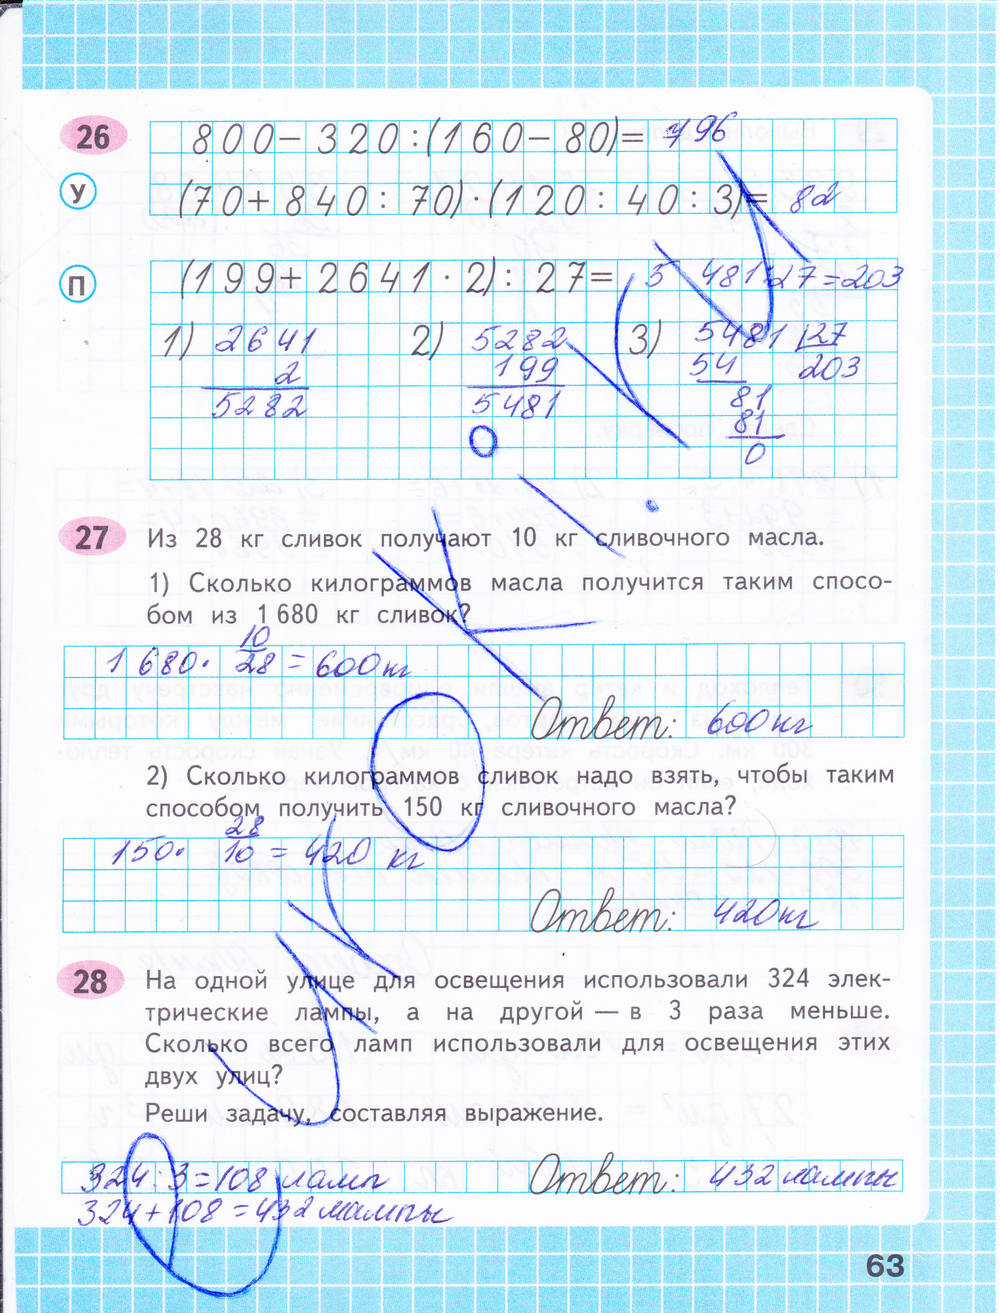 26
800 − 320 : (160 − 80) = 796
У
(70 + 840 : 70) · (120 : 40 : 3) = 82
П
(199 + 2641 · 2) : 27 = 5 481 : 27 = 203
1) 2641 2) 5282 3) 5481 27
2 199 54 203
5282 5481 81
81
0
27 Из 28 кг сливок получают 10 кг сливочного масла.
1) Сколько килограммов масла получится таким спосо-
бом из 1 680 кг сливок?
1 680 · 10/28 = 600 кг
Ответ: 600 кг
2) Сколько килограммов сливок надо взять, чтобы таким
способом получить 150 кг сливочного масла?
150 · 28/10 = 420 кг
Ответ: 420 кг
28 На одной улице для освещения использовали 324 элек-
трические лампы, а на другой — в 3 раза меньше.
Сколько всего ламп использовали для освещения этих
двух улиц?
Реши задачу, составляя выражение.
324 : 3 = 108 ламп Ответ: 432 лампы
324 + 108 = 432 лампы
63